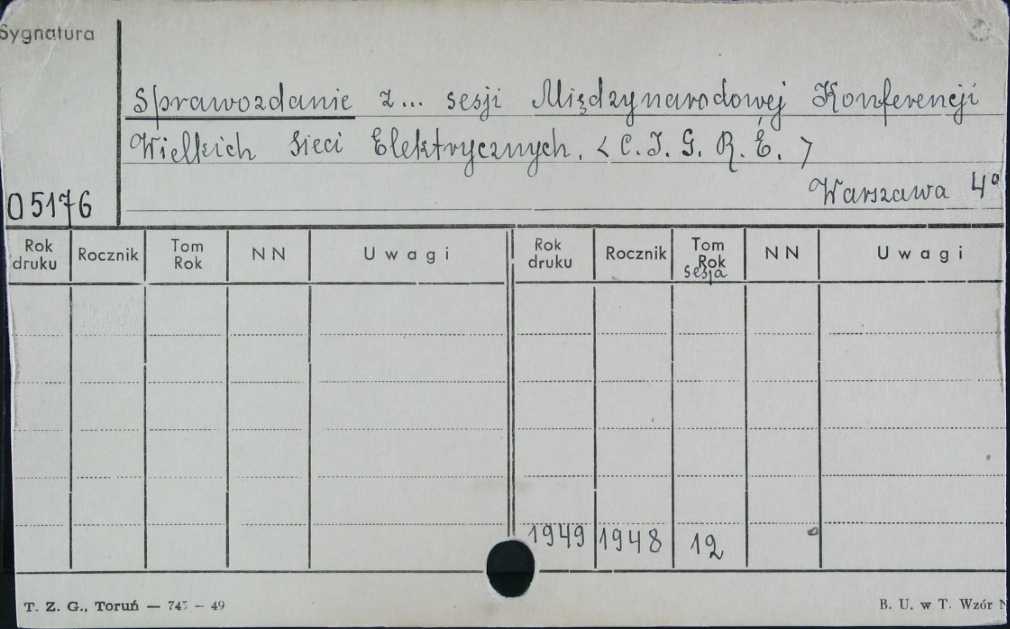 Sygnatura
Sprawozdanie z... sesji Międzynarodowej Konferencji
Wielkich Sieci Elektrycznych. < C. I. G. R. É. >
Warszawa 4°
05176
Rok druku Rocznik Tom Rok NN Uwagi Rok druku Rocznik Tom Rok sesja NN Uwagi
1949 1948 12
T. Z. G., Toruń — 745 — 49 B. U. w T. Wzór